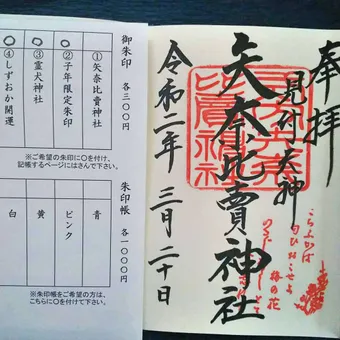 奉拝
見付天神
矢奈比賣神社
令和二年三月二十日
こちふかば
匂ひおこせよ
梅の花
御朱印 各三〇〇円
①矢奈比賣神社
②子年限定朱印 〇
③霊犬神社 〇
④しずおか開運 〇
※ご希望の朱印に〇を付け、
記帳するページにはさんで下さい。
朱印帳 各一〇〇〇円
青
ピンク
黄
白
※朱印帳をご希望の方は、
こちらに〇を付けて下さい。